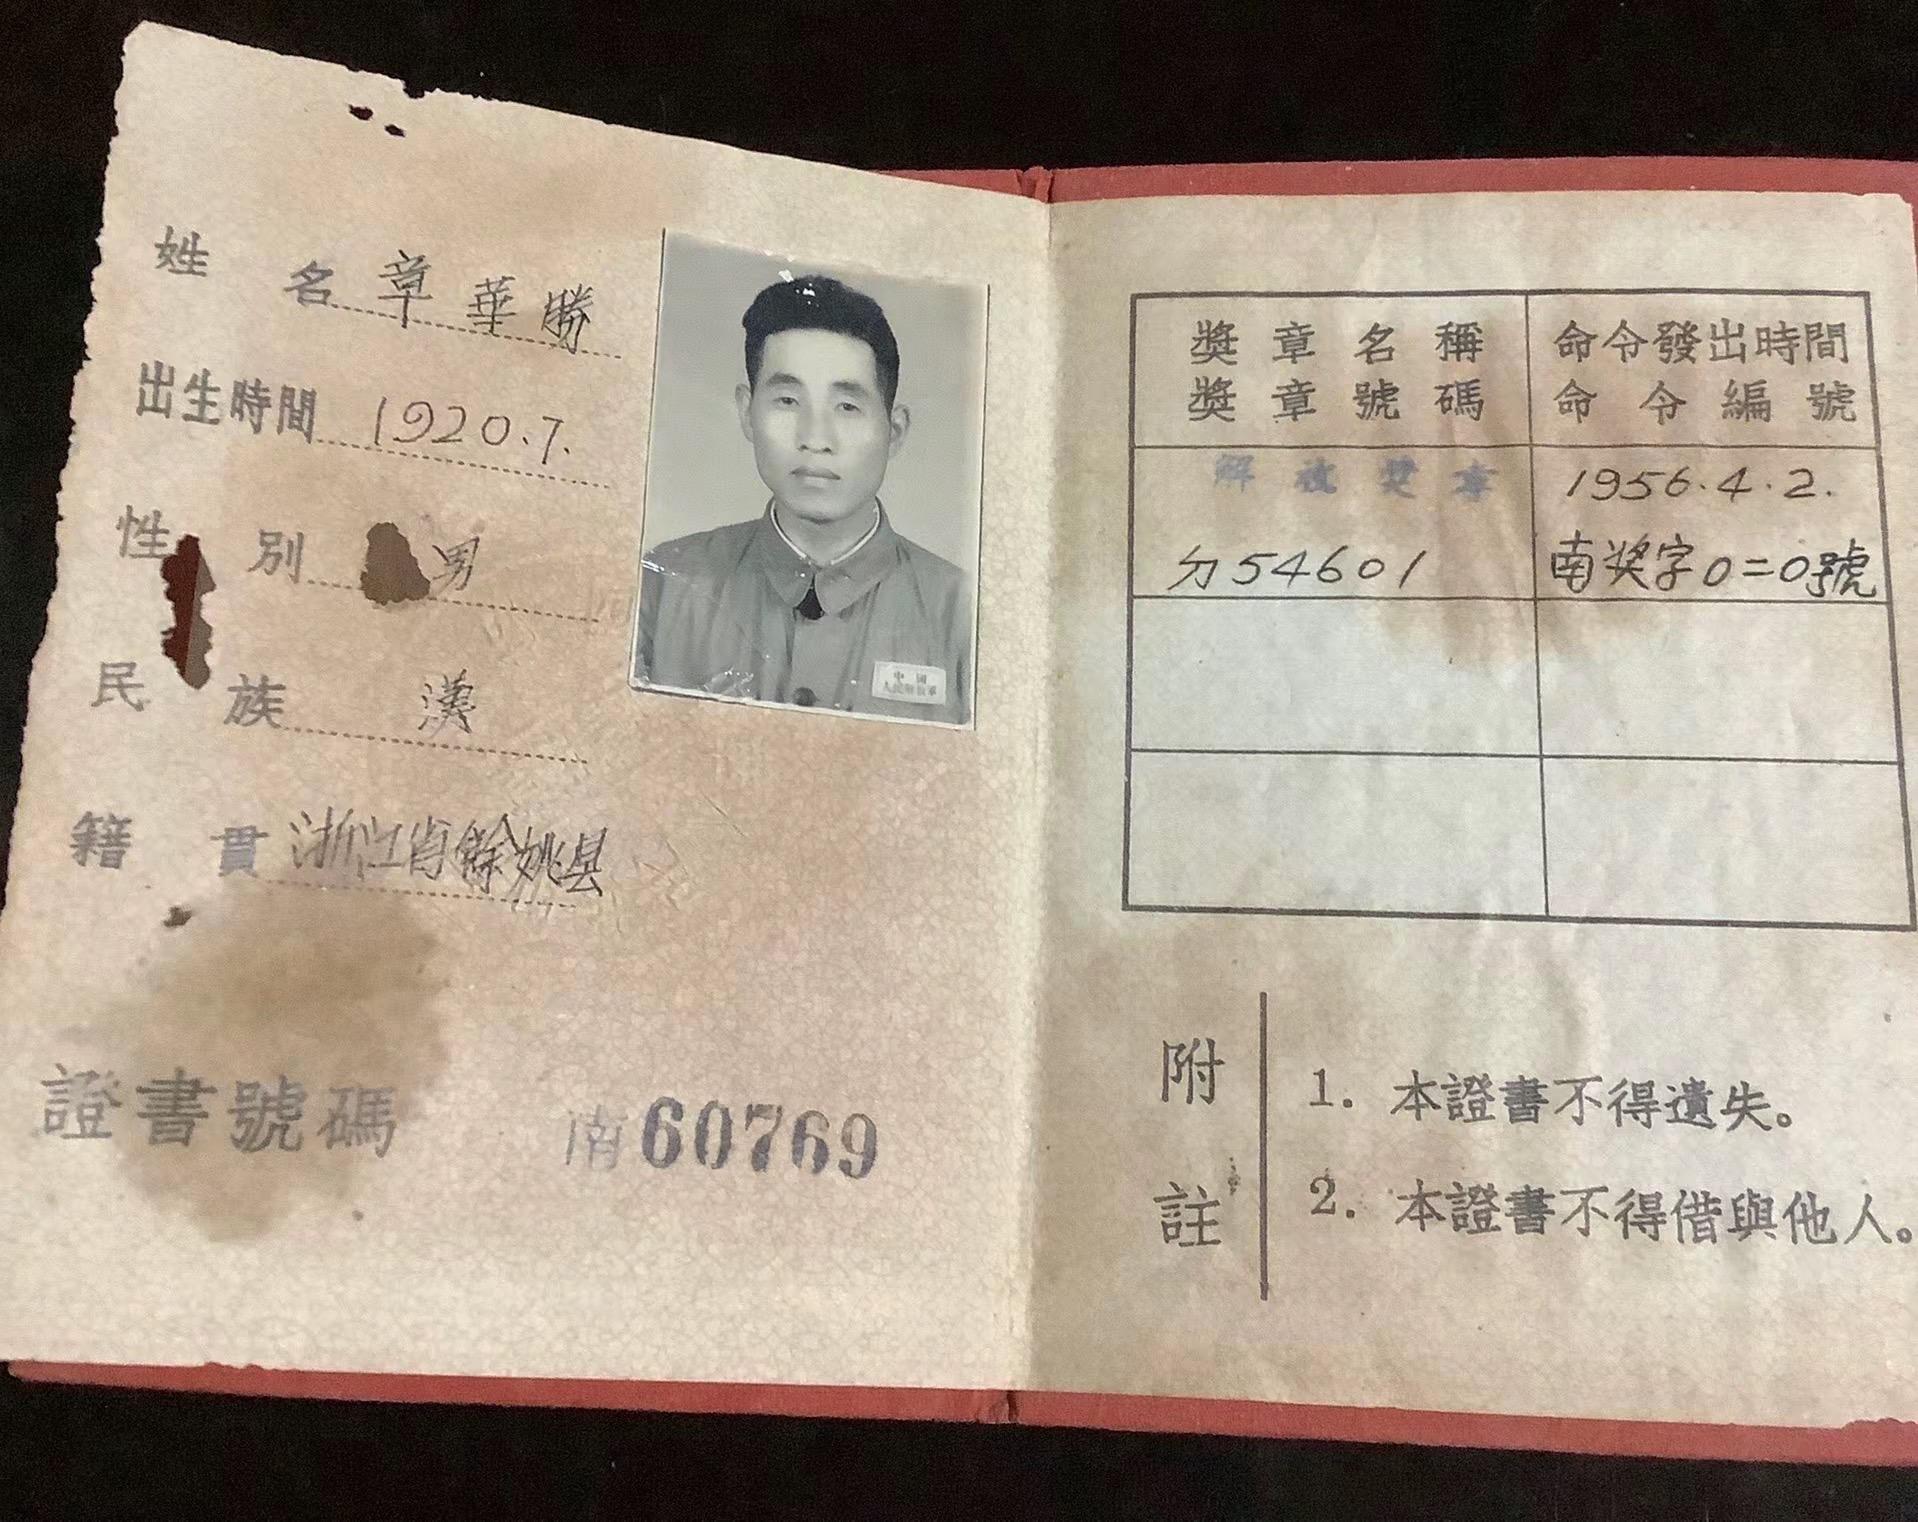 姓名 章華勝
出生時間 1920.7.
性別 男
民族 漢
籍貫 浙江省餘姚县
證書號碼 南60769
中国
人民解放军
獎章名稱
獎章號碼
命令發出時間
命令編號
解放奬章
1956.4.2.
54601
南奖字0二0號
附註
1. 本證書不得遺失。
2. 本證書不得借與他人。